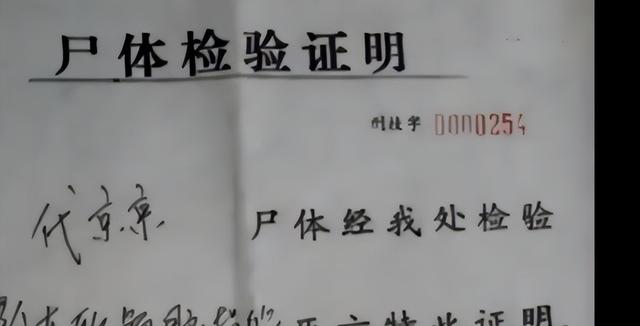 尸体检验证明
刑技字 0000254
代京京 尸体经我处检验
特此证明